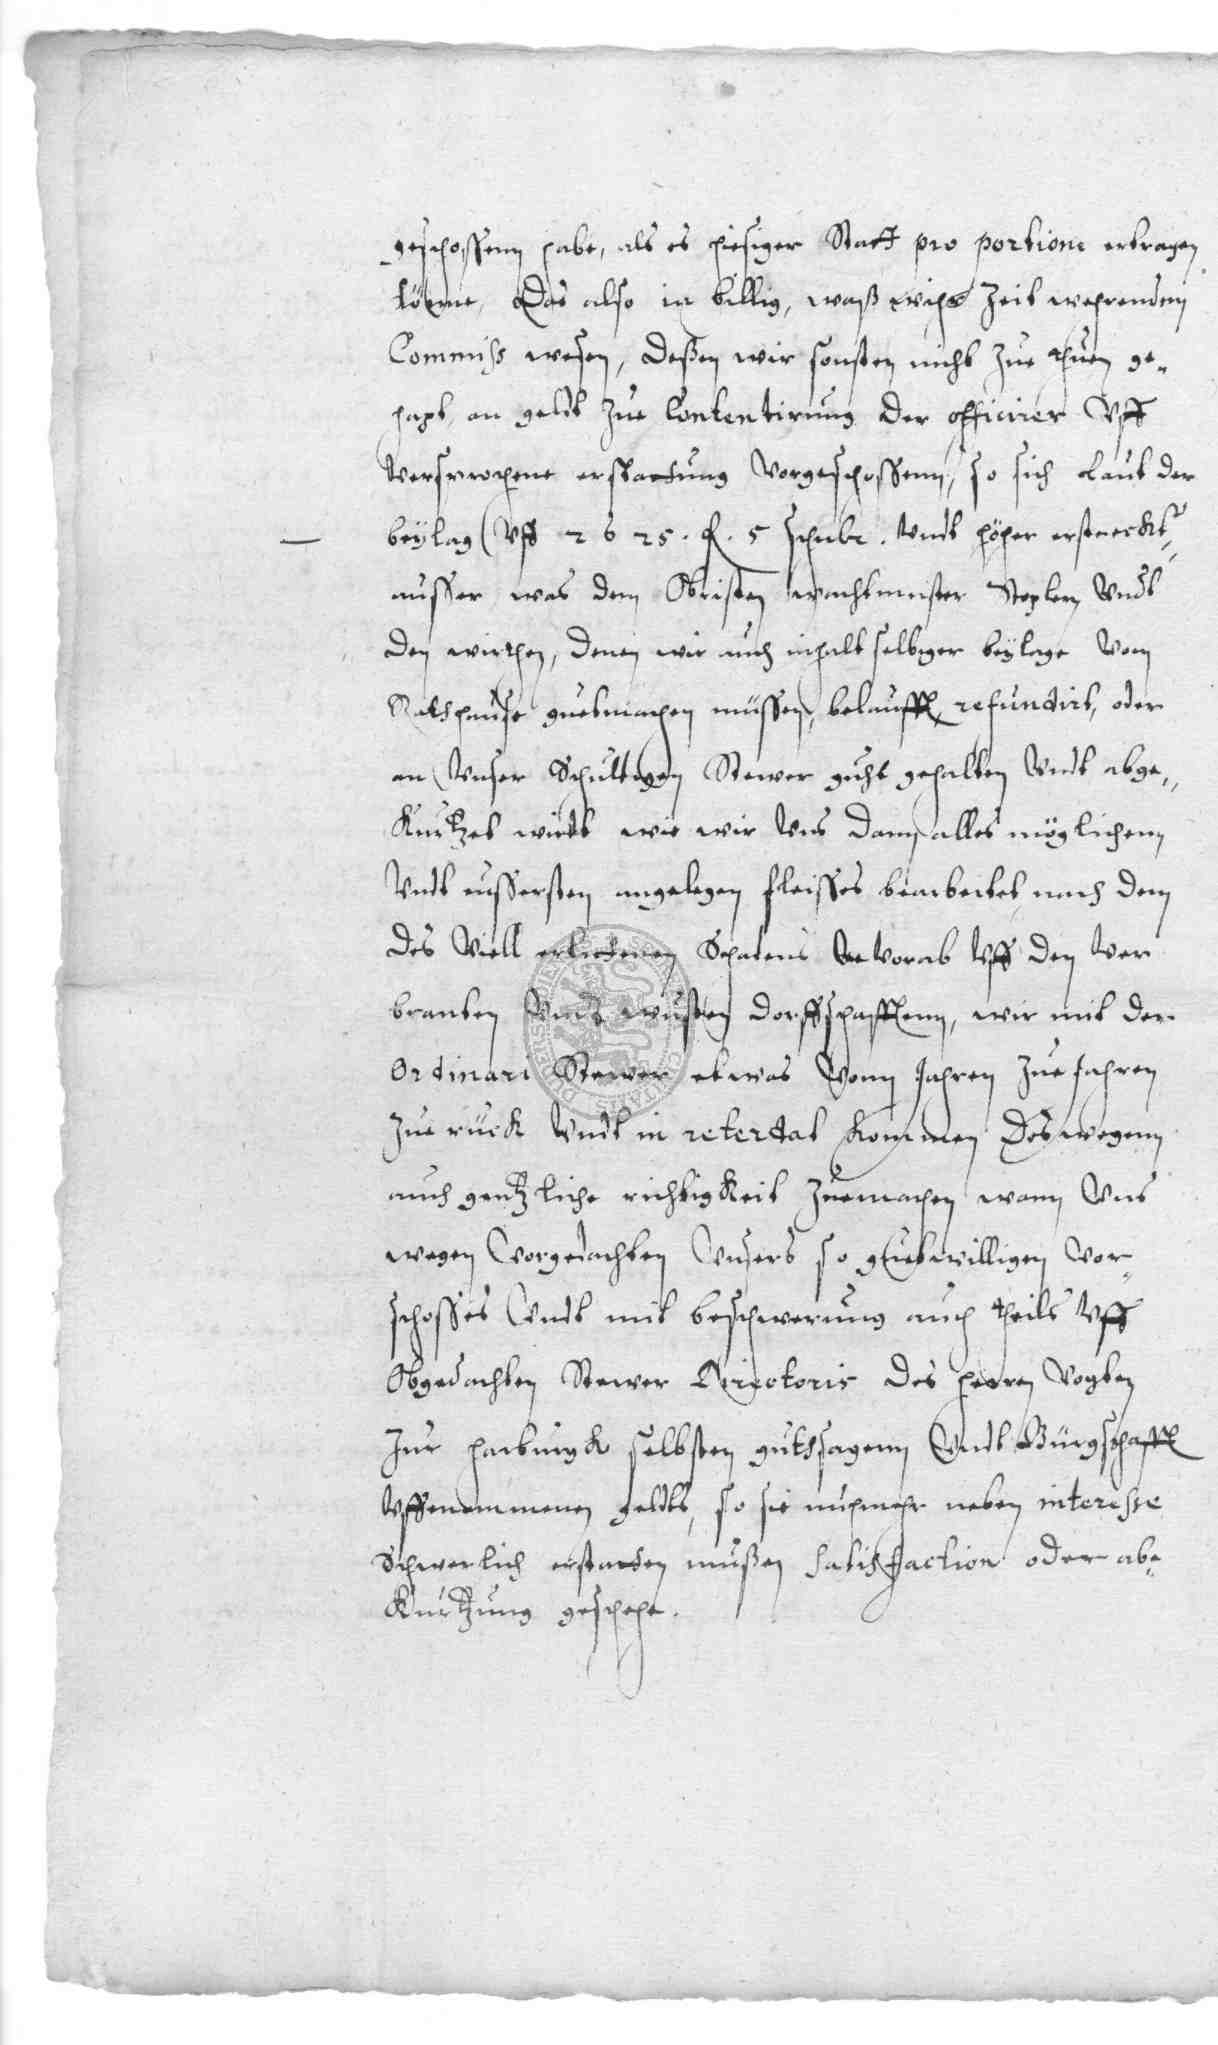 geschossenn habe, als es hiesiger Statt pro portione ertragen
könne, Das also in billig, waß wehr Zeit wehrendem
Commiss wesen, deßen wir sonsten nicht zue thuen ge„
hapt, an geldt zue Contentirung der officirer Vff
versprochene erstattung vorgeschossenn, so sich laut der
beÿlag Vff 2625. fl. 5 schilr. Vndt höher erstreckt„
ausser was dem Obristen wachtmeister Vndt
den wirthen, denen wir auch inhalt selbiger beÿlage vom
Rathhause guetmachen müssen, belaufft, refundirt, oder
an Vnser Schultigen Stewer guht gehalten Vndt abge„
Kurtzet wirdt wie wir Vns dann alles möglichenn
Vndt eussersten angelegen fleisses bearbeitet nach dem
des Viell erlittenen Schadens vorab Vff den ver
branten Vndt wüsten dorffschafftenn, wir mit der
Ordinari Stewer etwas vonn Jahren zue Jahren
zue rück Vndt in retardat kommen deswegenn
auch gentzliche richtigkeit zuemachen wann Vns
wegen vorgedachten Vnsers so guetwilligen vor„
schosses Vndt mit beschwerung auch theils Vff
Obgedachten Stewer Directoris des herren Vogten
zur harburgk selbsten guthsagenn Vndt Bürgschafft
Vffgenommenen geldts, so sie nuhmehr neben interesse
Schwerlich erstatten mußen satisfaction oder ab„
Kürtzung geschehe.